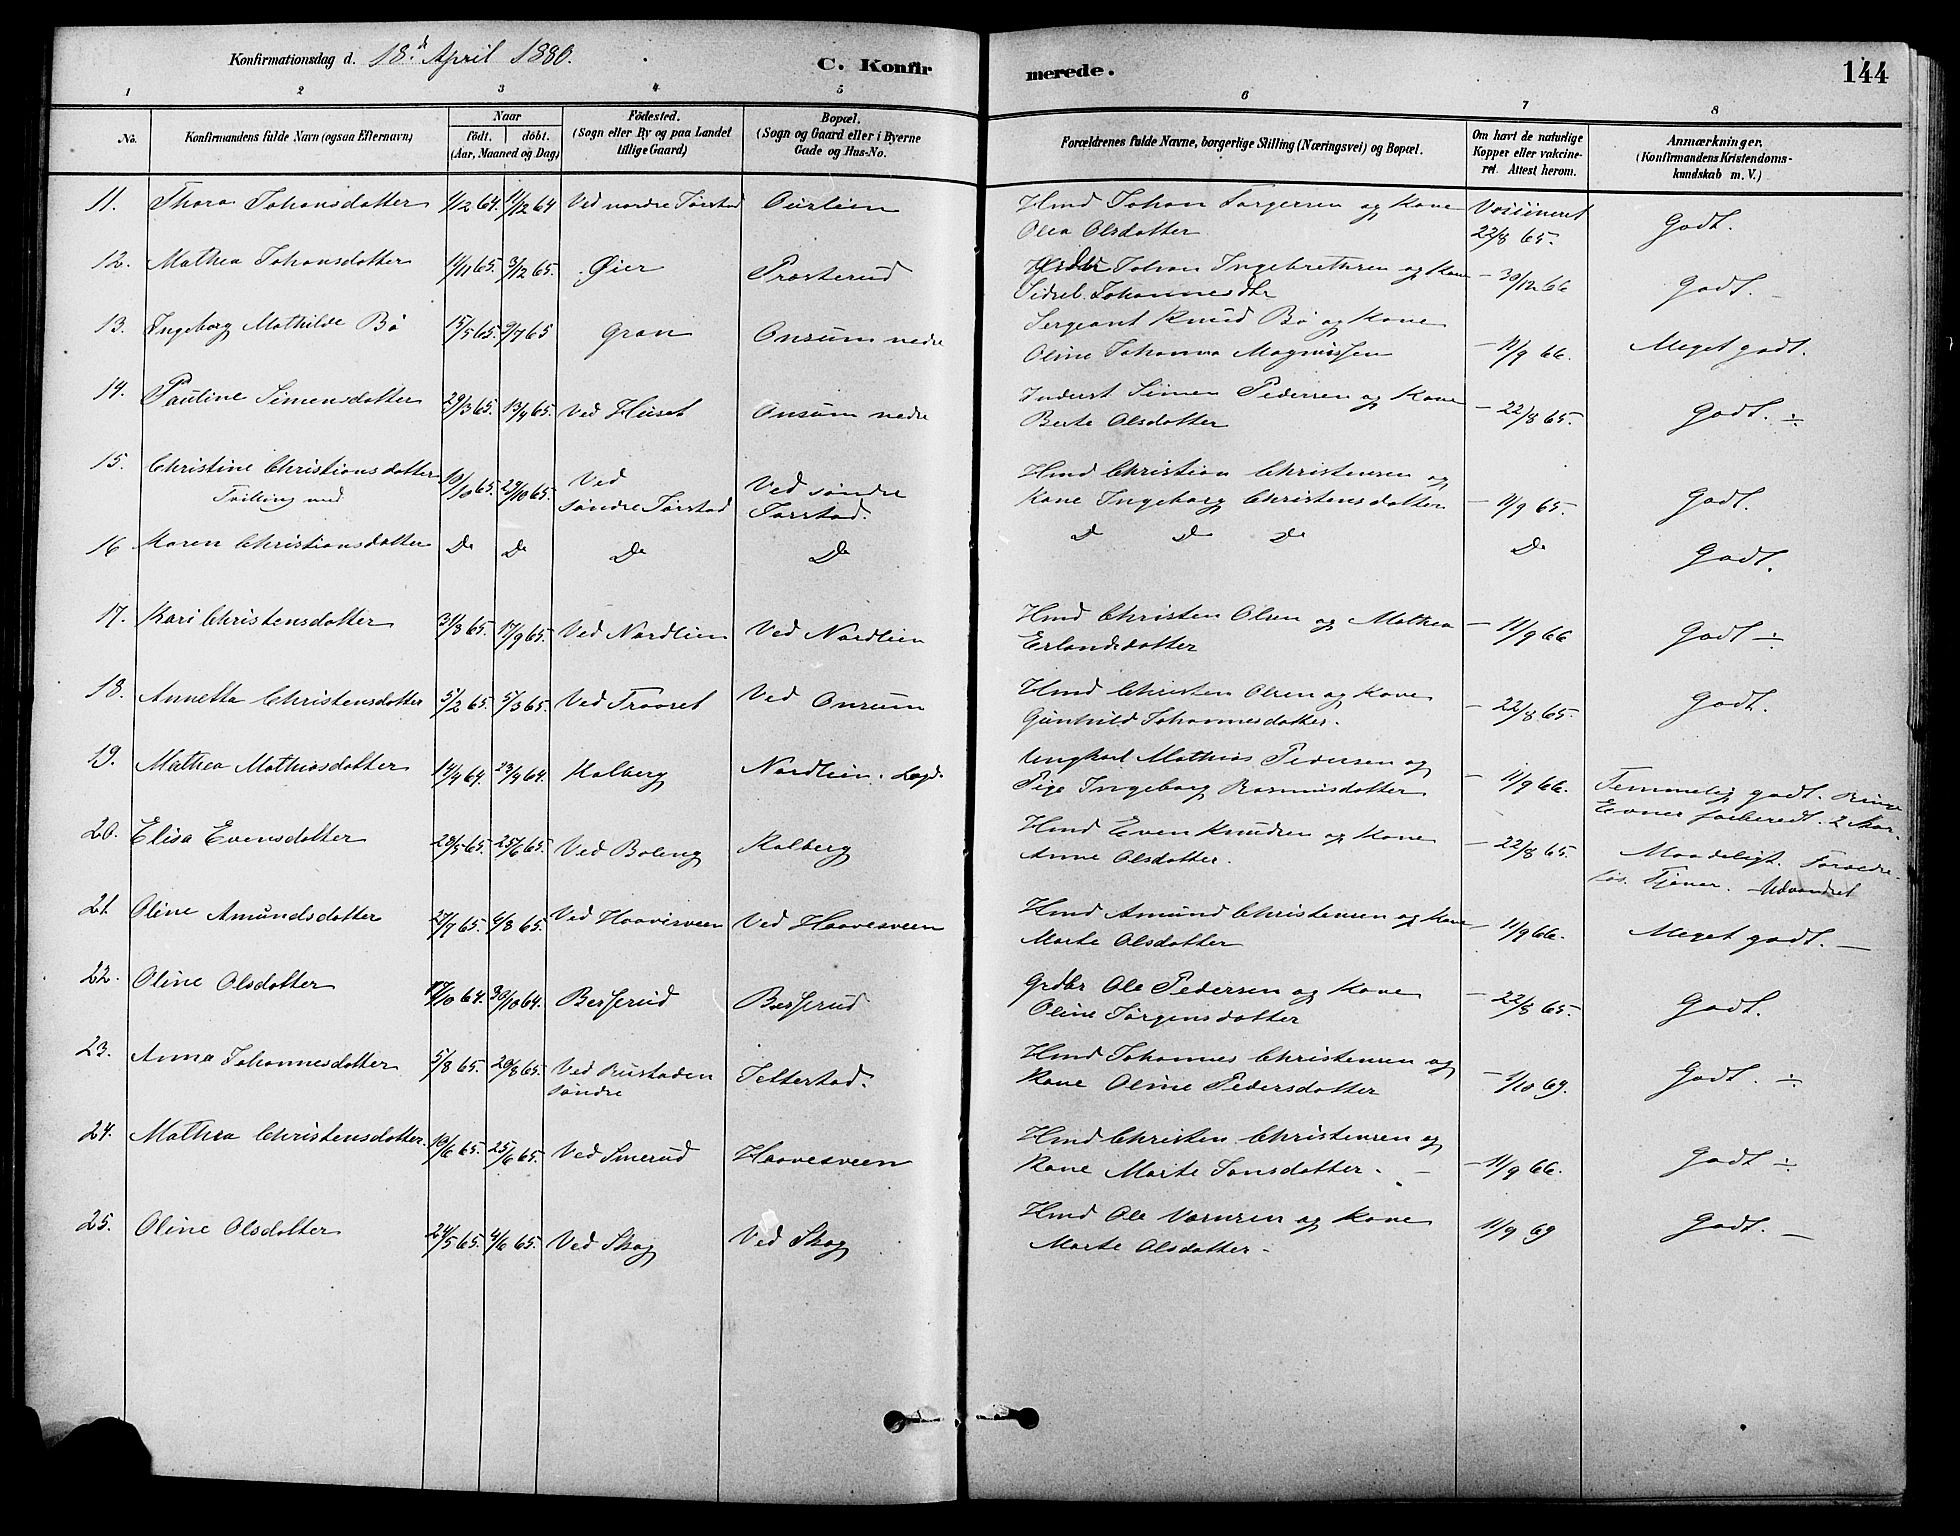 Konfirmationsdag d. 18de April 1880.
C. Konfir merede.
144
1 2 3 4 5 6 7 8
No.
Konfirmandens fulde Navn (ogsaa Efternavn)
Naar
födt. döbt.
(Aar, Maaned og Dag)
Födested.
(Sogn eller By og paa Landet
tillige Gaard)
Bopæl.
(Sogn og Gaard eller i Byerne
Gade og Hus-No.
Forældrenes fulde Navne, borgerlige Stilling (Næringsvei) og Bopæl.
Om havt de naturlige
Kopper eller vakcine-
ret. Attest herom.
Anmærkninger.
(Konfirmandens Kristendoms-
kundskab m. V.)
11. Thora Johansdatter 1/12 64. 11/12 64 Ved nordre Tørstad Hmd Johan Torgersen og Kone Vaccineret Godt.
Olea Olsdatter. 22/8 65.
12. Mathea Johansdatter 1/11 65. 3/12 65. Øier Præsterud Johan Ingebrethsen og Kone — 30/12 66 Godt. —
Sidsel Johannesdtr
13. Ingeborg Mathilde Bö 15/5 65. 9/7 65 Gran Onsum nedre Sergeant Knud Bö og Kone
Oline Johanna Magnussen — 11/9 66. Meget godt.
14. Pauline Simensdatter 29/3 65. 13/4 65. Ved Huset Onsum nedre Inderst Simen Pedersen og Kone — 22/8 65. Godt. ÷
Berte Olsdatter
15. Christine Christiansdatter 10/10 65. 29/10 65. Ved Ved søndre Hmd Christian Christensen og
Tvilling med søndre Tørstad Tørstad. Kone Ingeborg Christensdatter — 11/9 65. Godt.
16 Karen Christiansdatter Do Do Do Do Do Do Do Do Godt.
17. Kari Christensdatter 31/8 65. 17/9 65. Ved Nordlien Ved Nordlien Hmd Christen Olsen og Mathea — 11/9 66 Godt ÷
Erlandsdatter
18. Annetta Christensdatter 5/2 65. 5/3 65. Ved Traaset Ved Onsum Hmd Christen Olsen og Kone — 22/8 65. Godt.
Gunhild Johannesdatter.
19. Mathea Mathiasdatter 14/4 64. 23/4 64. Kalberg Nordlien. Lægd. Ungkarl Mathias Pedersen og
Pige Ingeborg Rasmusdatter — 11/9 66. Temmelig godt. Ringe
Evner forberedt. 2 Aar.
20. Elisa Evensdatter 28/5 65. 25/6 65. Ved Boleng Kalberg Hmd Even Knudsen og Kone — 22/8 65. Maadeligt. Forældre-
Anne Olsdatter. løs. Tjener. — Udvandret
21. Oline Amundsdatter 27/7 65. 6/8 65. Ved Haavisveen Ved Haavesveen Hmd Amund Christensen og Kone — 11/9 66. Meget godt. —
Marte Olsdatter
22. Oline Olsdatter 17/10 64. 30/10 64. Berserud Berserud Grdbr Ole Pedersen og Kone — 22/8 65. Godt.
Oline Jørgensdatter
23. Anna Johannesdatter 5/8 65. 20/8 65. Ved Rustaden Jetterstad. Hmd Johannes Christensen og
søndre Kone Oline Pedersdatter — 1/10 69. Godt. ÷
24. Mathea Christensdatter. 10/6 65. 25/6 65. Ved Smerud Haavesveen Hmd Christen Christensen og
Kone Marte Jonsdatter. — — 11/9 66. Godt ÷
25. Oline Olsdatter 24/5 65. 4/6 65. Ved Skog Ved Skog Hmd Ole og Kone 11/9 69 Godt. —
Marte Olsdatter —